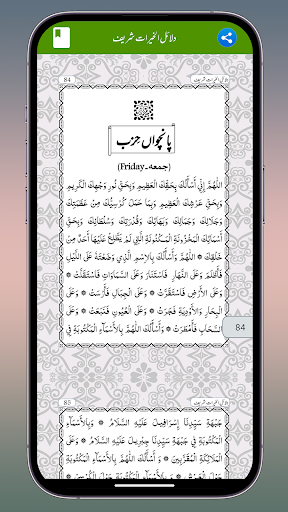 دلائل الخیرات شریف
84
دلائل الخیرات شریف
پانچواں حزب
(جمعہ۔Friday)
اَللّٰهُمَّ اِنِّي أَسْأَلُكَ بِحَقِّكَ الْعَظِيْمِ وَبِحَقِّ نُوْرِ وَجْهِكَ الْكَرِيْمِ
وَبِحَقِّ عَرْشِكَ الْعَظِيْمِ وَبِمَا حَمَلَ كُرْسِيُّكَ مِنْ عَظَمَتِكَ
وَجَلَالِكَ وَجَمَالِكَ وَبَهَائِكَ وَقُدْرَتِكَ وَسُلْطَانِكَ وَبِحَقِّ
أَسْمَائِكَ الْمَخْزُوْنَةِ الْمَكْنُوْنَةِ الَّتِي لَمْ يَطَّلِعْ عَلَيْهَا أَحَدٌ مِنْ
خَلْقِكَ * اَللّٰهُمَّ وَأَسْأَلُكَ بِالِاسْمِ الَّذِي وَضَعْتَهُ عَلَى اللَّيْلِ
فَأَظْلَمَ وَعَلَى النَّهَارِ فَاسْتَنَارَ وَعَلَى السَّمَاوَاتِ فَاسْتَقَلَّتْ *
وَعَلَى الْأَرْضِ فَاسْتَقَرَّتْ * وَعَلَى الْجِبَالِ فَأَرْسَتْ * وَعَلَى
الْبِحَارِ وَالْأَوْدِيَةِ فَجَرَتْ * وَعَلَى الْعُيُوْنِ فَنَبَعَتْ * وَعَلَى
السَّحَابِ فَأَمْطَرَتْ * وَأَسْأَلُكَ اللّٰهُمَّ بِالْأَسْمَاءِ الْمَكْتُوْبَةِ فِي
84
85
دلائل الخیرات شریف
جَبْهَةِ سَيِّدِنَا إِسْرَافِيْلَ عَلَيْهِ السَّلَامُ * وَبِالْأَسْمَاءِ
الْمَكْتُوْبَةِ فِي جَبْهَةِ سَيِّدِنَا جِبْرِيْلَ عَلَيْهِ السَّلَامُ وَعَلَى
الْمَلَائِكَةِ الْمُقَرَّبِيْنَ * وَأَسْأَلُكَ اللّٰهُمَّ بِالْأَسْمَاءِ